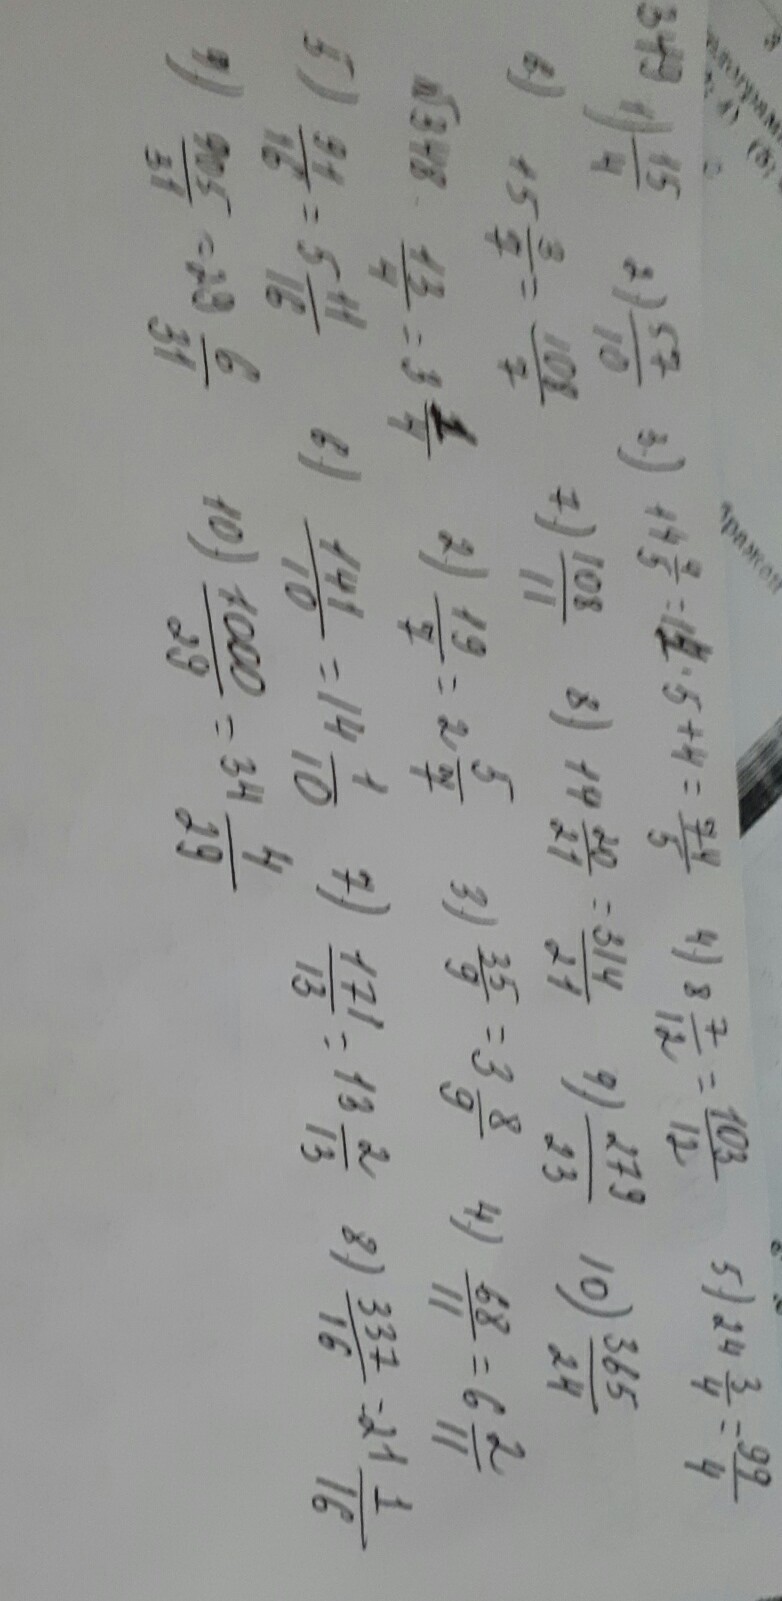 349 1) 15/4 2) 57/10 3) 14 4/5 = 14 · 5 + 4 = 74/5 4) 8 7/12 = 103/12 5) 24 3/4 = 99/4
6) 15 3/7 = 108/7 7) 108/11 8) 14 20/21 = 314/21 9) 279/23 10) 365/24
№348. 13/4 = 3 1/4 2) 19/7 = 2 5/7 3) 35/9 = 3 8/9 4) 68/11 = 6 2/11
5) 91/16 = 5 11/16 6) 141/10 = 14 1/10 7) 171/13 = 13 2/13 8) 337/16 = 21 1/16
9) 905/31 = 29 6/31 10) 1000/29 = 34 4/29